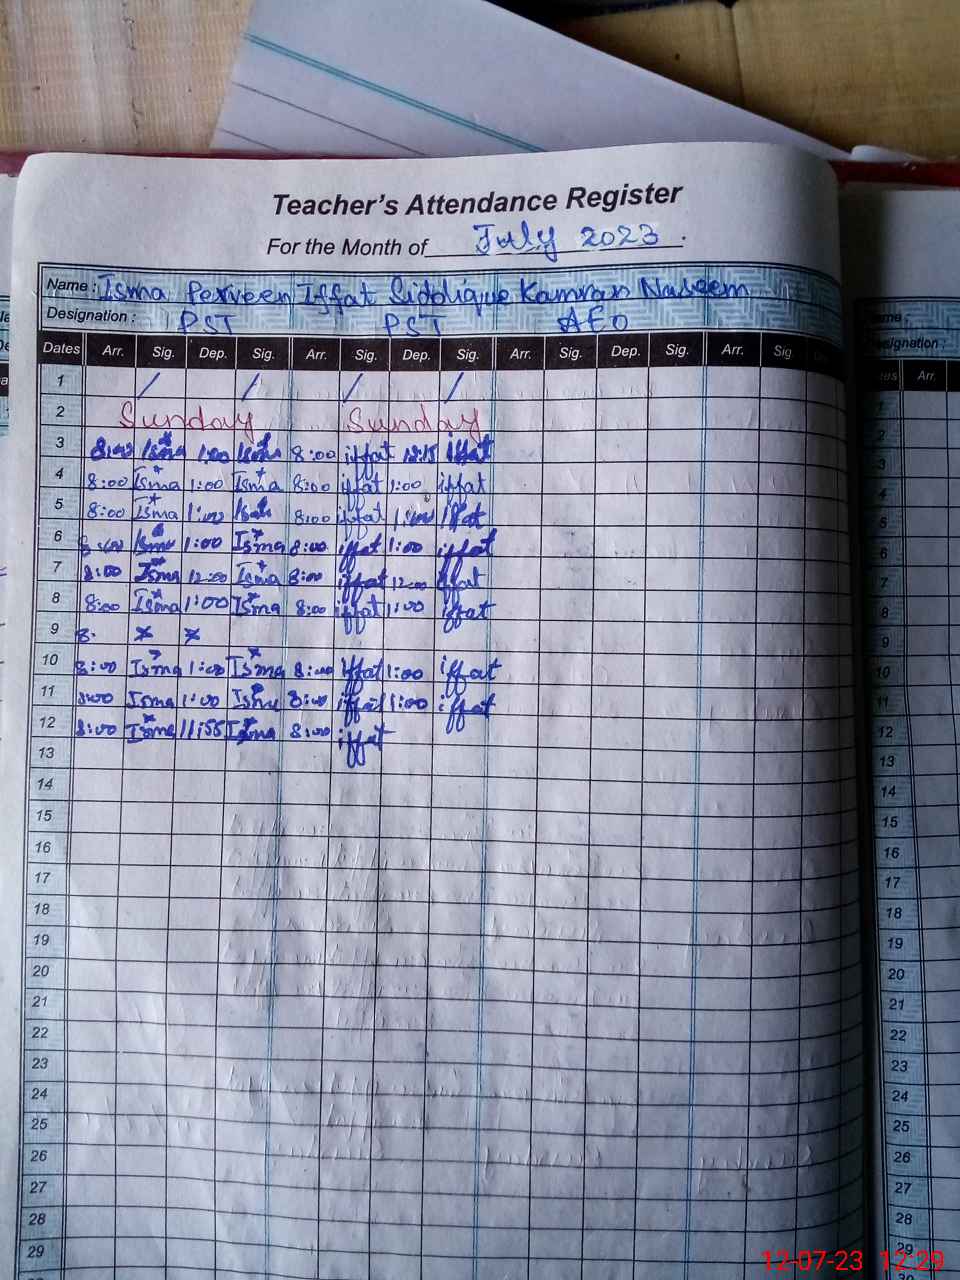 Teacher's Attendance Register
For the Month of July 2023.
Name : Isma Perveen Iffat Siddique Kamran Naseem
Designation : PST PST AEO
Dates Arr. Sig. Dep. Sig. Arr. Sig. Dep. Sig. Arr. Sig. Dep. Sig. Arr. Sig.
1 / / / /
2 Sunday Sunday
3 8:00 Isma 1:00 Isma 8:00 iffat 12:15 iffat
4 8:00 Isma 1:00 Isma 8:00 iffat 1:00 iffat
5 8:00 Isma 1:00 8:00 iffat 1:00 iffat
6 8:00 Isma 1:00 Isma 8:00 iffat 1:00 iffat
7 8:00 Isma 12:00 Isma 8:00 iffat 12:00 iffat
8 8:00 Isma 1:00 Isma 8:00 iffat 1:00 iffat
9 8. × ×
10 8:00 Isma 1:00 Isma 8:00 iffat 1:00 iffat
11 8:00 Isma 1:00 Isma 8:00 iffat 1:00 iffat
12 8:00 Isma 11:55 Isma 8:00 iffat
13
14
15
16
17
18
19
20
21
22
23
24
25
26
27
28
29
esignation :
Arr.
2
3
4
5
6
7
8
9
10
11
12
13
14
15
16
17
18
19
20
21
22
23
24
25
26
27
28
29
12-07-23 12:29